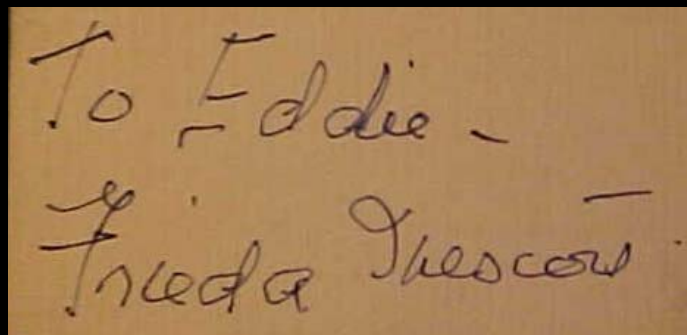 To Eddie -
Frieda Inescort